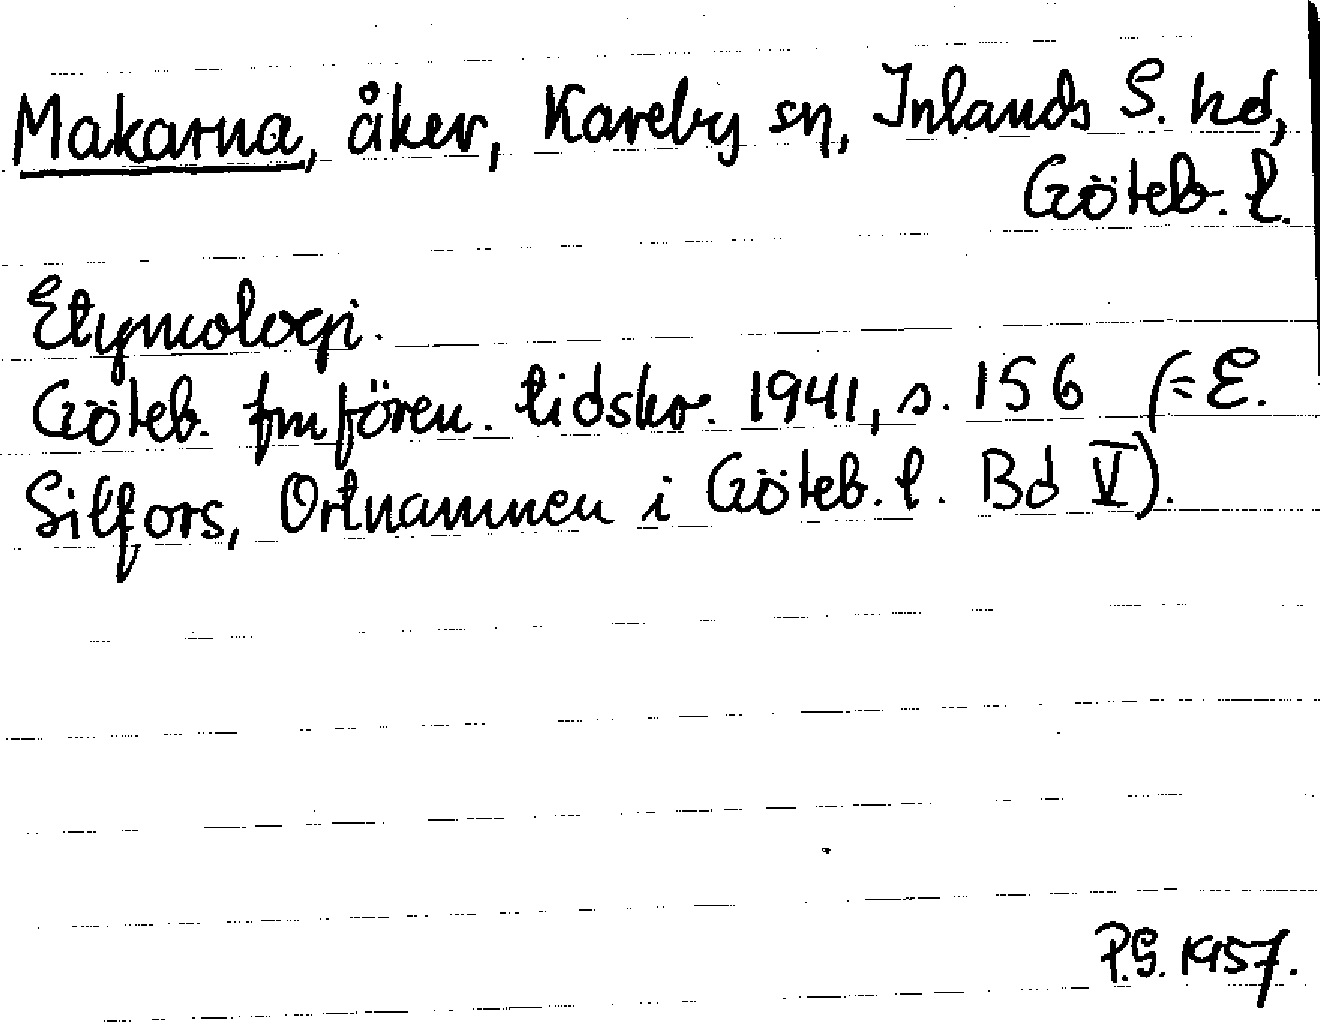 Makarna, åker, Kareby sn, Inlands S. hd,
Göteb. l.
Etymologi.
Göteb. fmfören. tidskr. 1941, s. 156 (= E.
Silfors, Ortnamnen i Göteb. l. Bd V).
P.G. 1957.